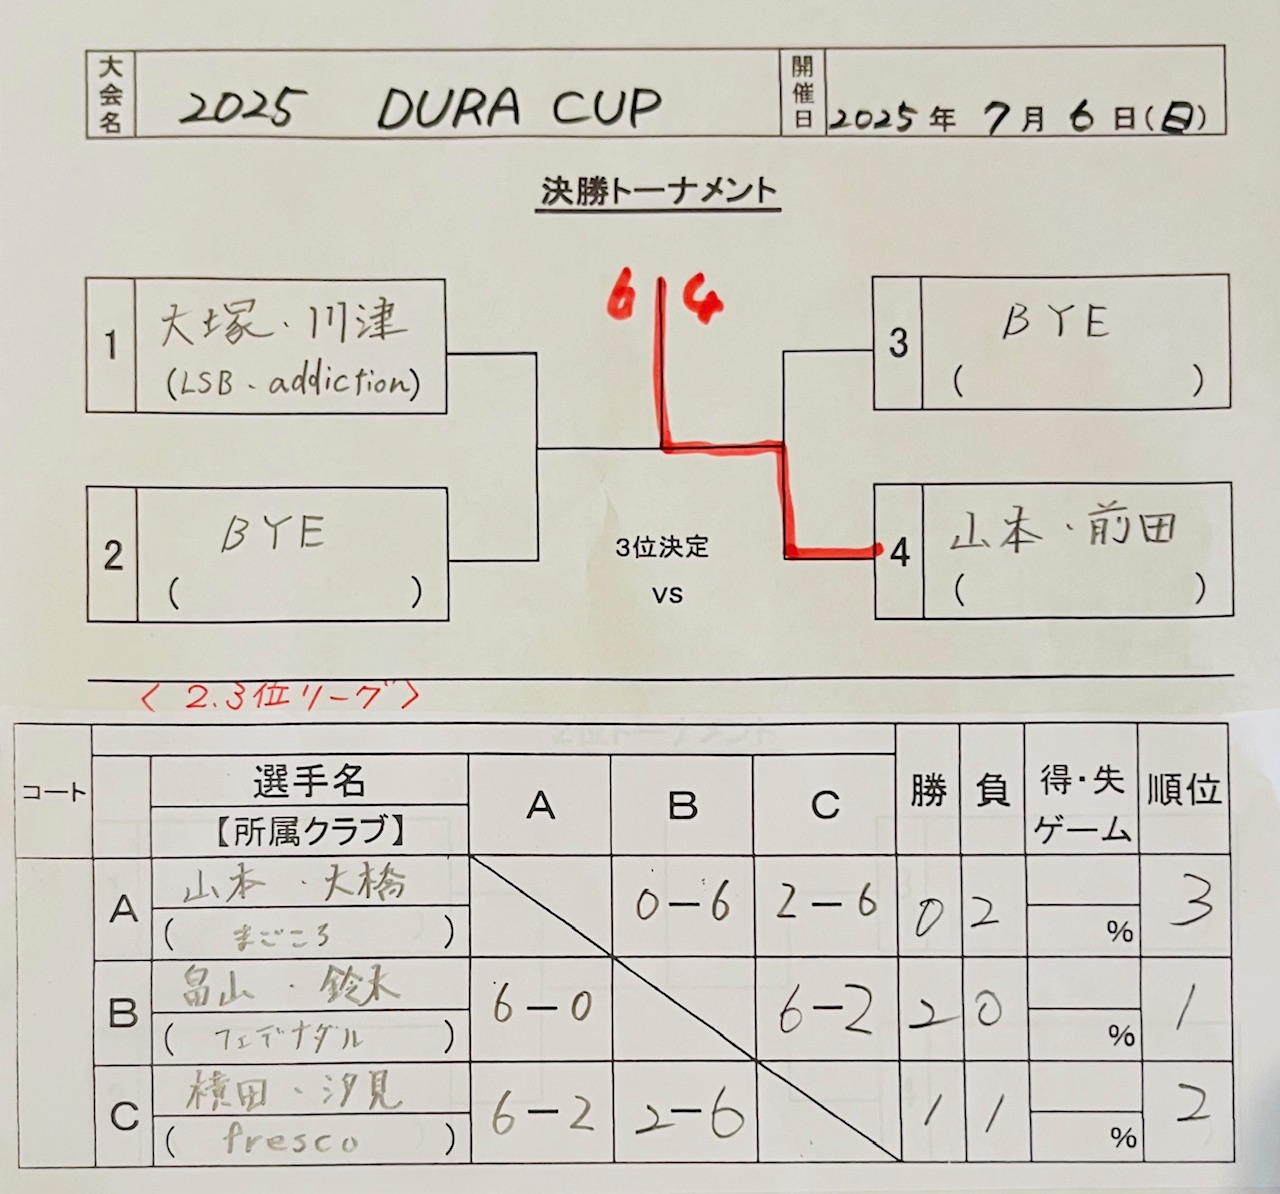 大会名 2025 DURA CUP 開催日 2025年 7月 6日(日)
決勝トーナメント
6 4
1 大塚・川津 3 BYE
(LSB・addiction) ( )
2 BYE 4 山本・前田
( ) ( )
3位決定
vs
〈2.3位リーグ〉
コート 選手名 A B C 勝 負 得・失 順位
【所属クラブ】 ゲーム
A 山本・大橋 0-6 2-6 0 2 3
(まごころ) %
B 畠山・鈴木 6-0 6-2 2 0 1
(フェデナダル) %
C 横田・汐見 6-2 2-6 1 1 2
(fresco) %